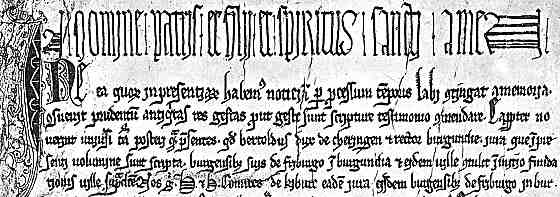 In nomine patris et filii et spiritus sancti ame
Ne ea que in presentiar habem noticia p pcessum temporis labi gtingat a memoria.
posuerit prudentum antiqitas res gestas put geste sunt scripture testimonio gmendare. Eappter no
verint universi ta posteri q psentes. qd bertoldus dux de cheringen et rector burgundie. iura que in pre
senti volumine sunt scripta, burgensib suis de friburgo in burgundia et eidem ville gtulit in initio funda
tionis ville Nos h. et h. Comites de kiburc eadem iura. eisdem burgensib de friburgo in bur